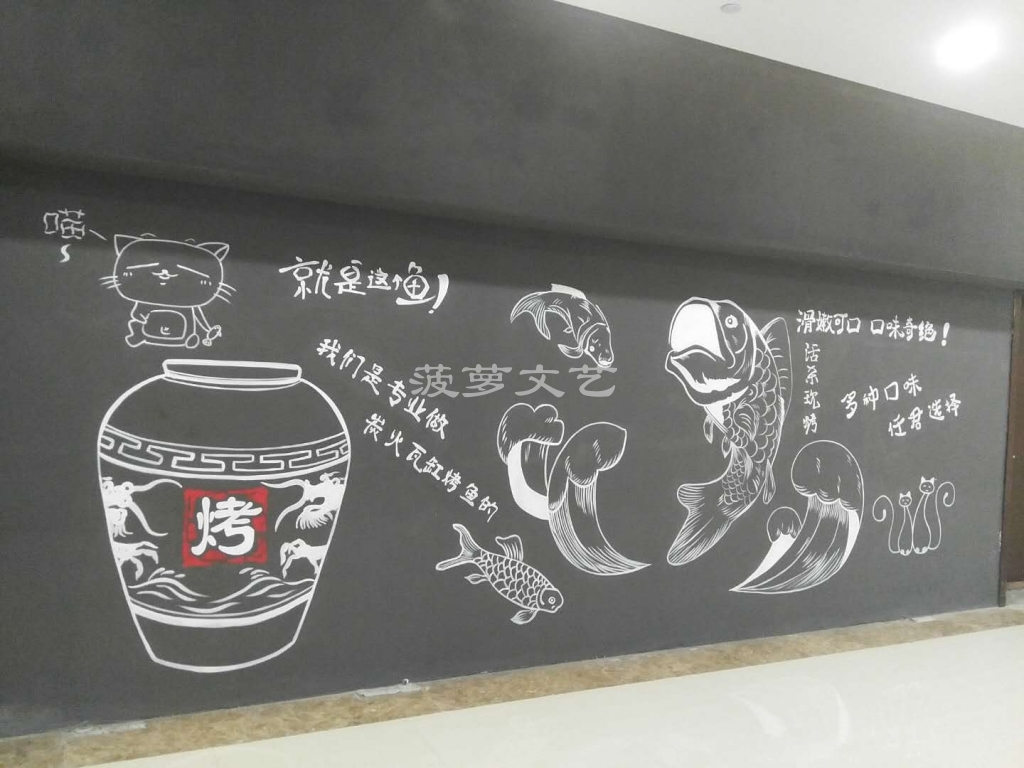 喵~
就是这个鱼!
我们是专业做
炭火瓦缸烤鱼的
烤
菠萝文艺
滑嫩可口 口味奇绝!
活杀现烤
多种口味
任君选择